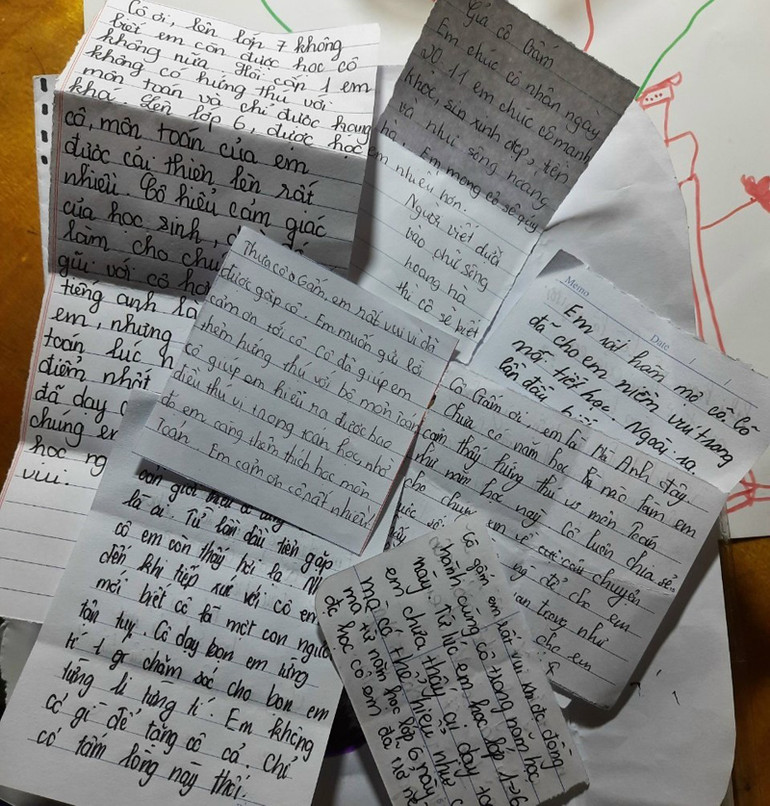 Cô ơi, lên lớp 7 không
biết em còn được học cô
không nữa. Hồi cấp 1 em
không có hứng thú với
môn toán và chỉ được hạng
khá. Lên lớp 6, được học
cô, môn toán của em
được cải thiện lên rất
nhiều. Cô hiểu cảm giác
của học sinh,
làm cho chú
gũi với cô hơ
tiếng anh là
em, nhưng
toán lúc
điểm nhất
đã dạy
chúng em
học
vui.
Gửi cô Gấm
Em chúc cô nhân ngày
20 11 em chúc cô mạnh
khỏe, sin xinh đẹp,
và như sông hoàng
hà. Em mong cô sẽ
em nhiều hơn.
Người viết dưới
vào phú sông
hoàng hà
thì cô sẽ biết
Thưa cô Gấm, em rất vui vì đã
được gặp cô. Em muốn gửi lời
cảm ơn tới cô. Cô đã giúp em
thêm hứng thú với bộ môn toán
cô giúp em hiểu ra được bao
điều thú vị trong toán học, nhờ
đó em càng thêm thích học môn
Toán. Em cảm ơn cô rất nhiều!
Memo
Date / /
Em rất hâm mộ cô. Cô
đã cho em niềm vui trong
mỗi tiết học. Ngoài ra
lần đầu
Cô Gấm ơi, em là Hà Anh đây.
Chưa có năm học nào làm em
cảm thấy hứng thú vs môn Toán
như năm học này. Cô luôn chia sẻ
cho chúng em về câu chuyện
để cho em
như
cho em
là ai. Từ lần đầu tiên gặp
cô em còn thấy hơi lạ
đến khi tiếp xúc với cô em
mới biết cô là một con người
tận tụy. Cô dạy bọn em từng
tí 1 chăm sóc cho bọn em
từng li từng tí. Em không
có gì để tặng cô cả. Chỉ
có tấm lòng này thôi.
Cô gấm em rất vui khi đã đồng
hành cùng cô trong năm học
này. Từ lúc em học lớp 1->6
em chưa thấy ai dạy to
mà có thể hiểu như c
mà từ năm học lớp 6 này
đc học cô em đã